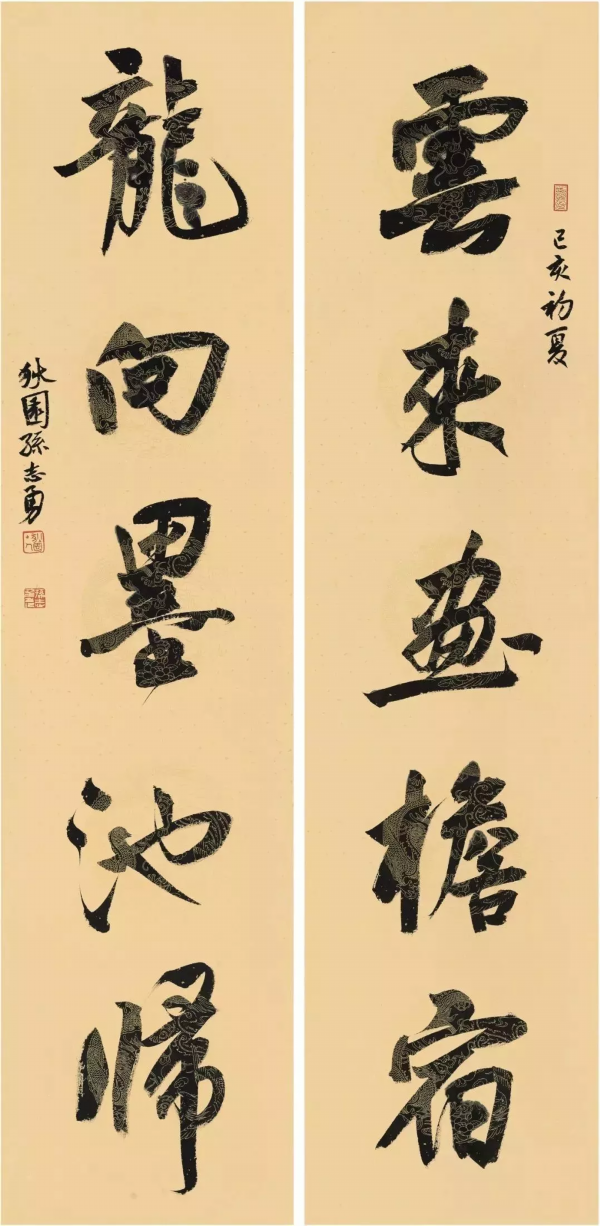 雲来画檐宿
己亥初夏
龍向墨池歸
狄園孫志勇